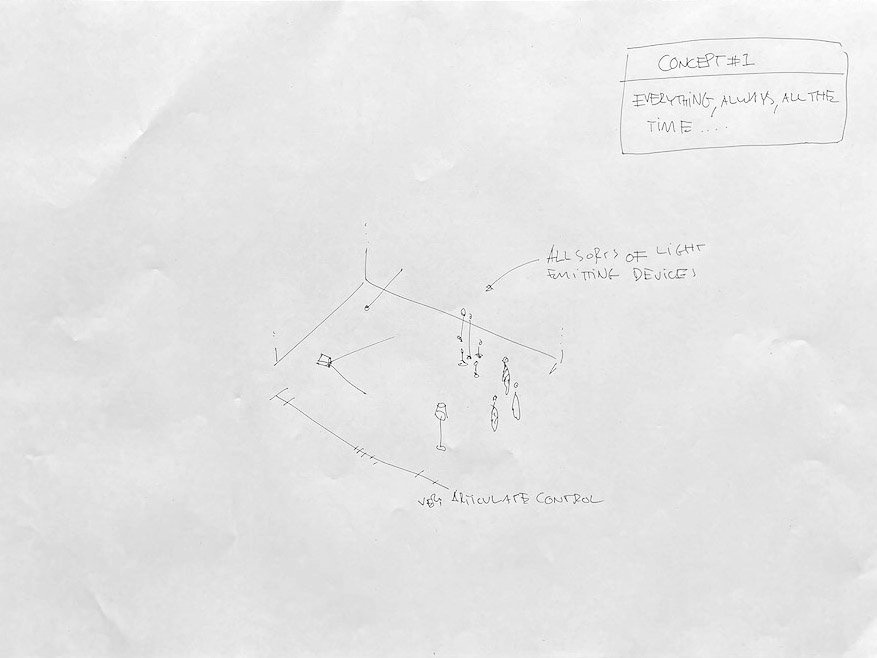 CONCEPT #1
EVERYTHING, ALWAYS, ALL THE
TIME ....
ALL SORTS OF LIGHT
EMITTING DEVICES
VERY ARTICULATE CONTROL